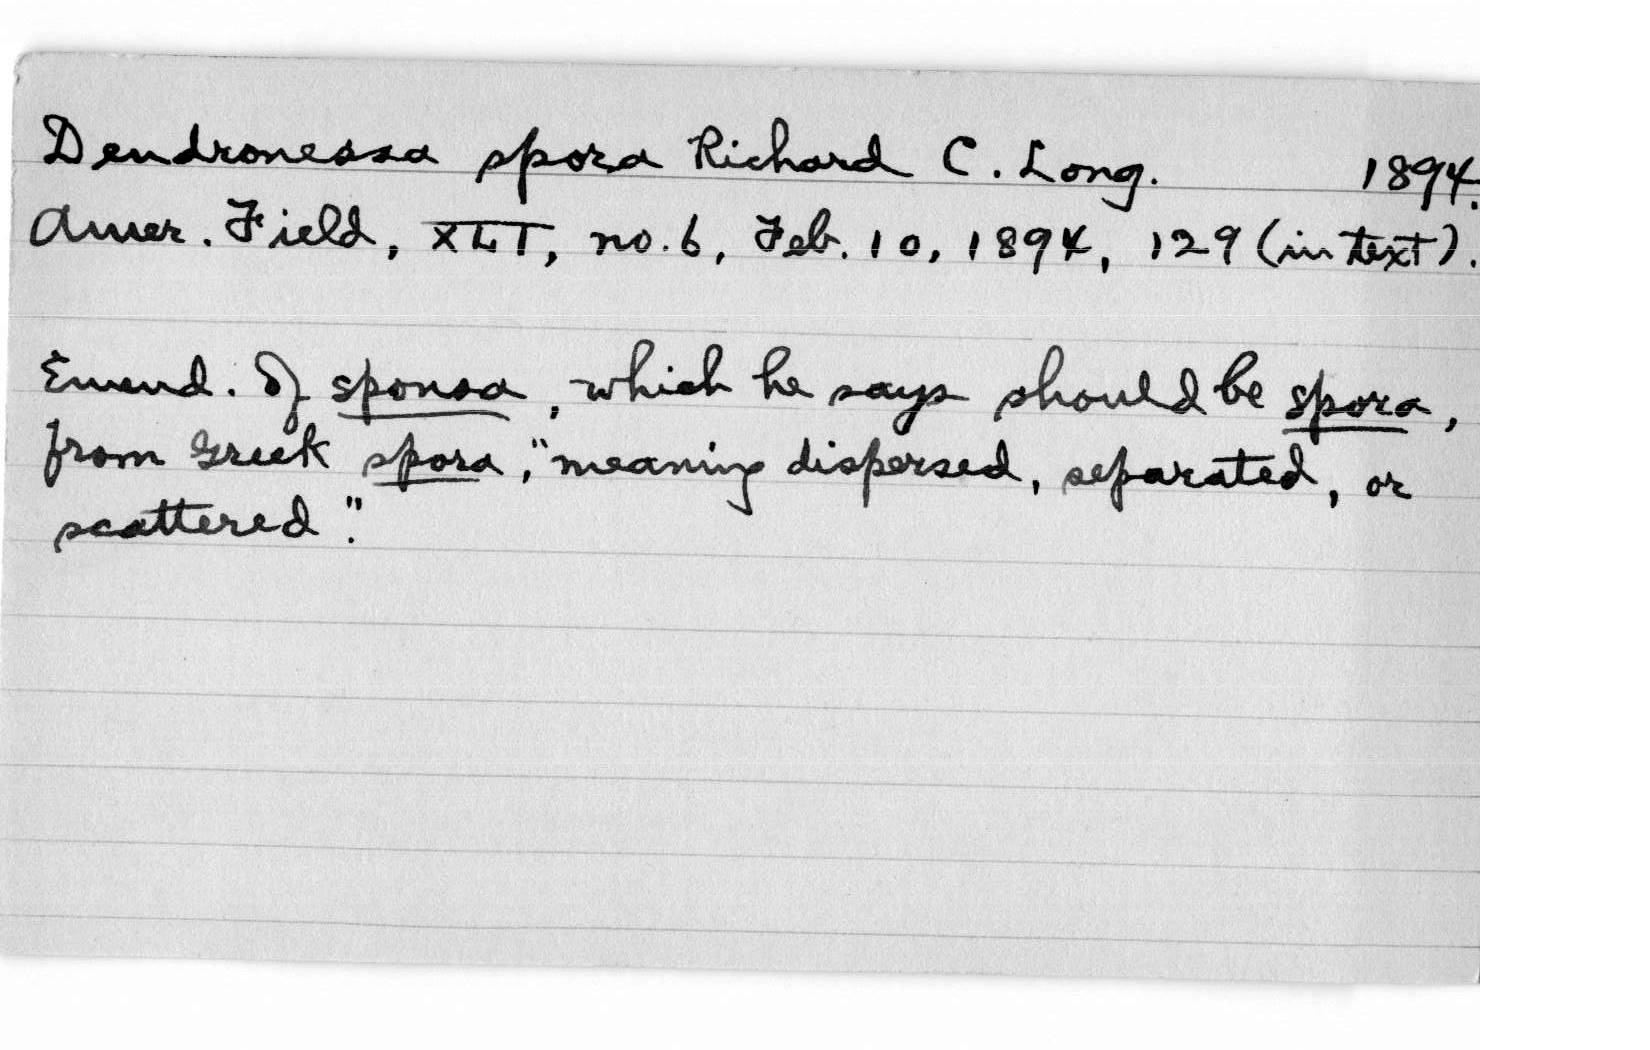 Dendronessa spora Richard C. Long. 1894.
Amer. Field, XLI, no. 6, Feb. 10, 1894, 129 (in text).
Emend. of sponsa, which he says should be spora,
from Greek spora, "meaning dispersed, separated, or
scattered".